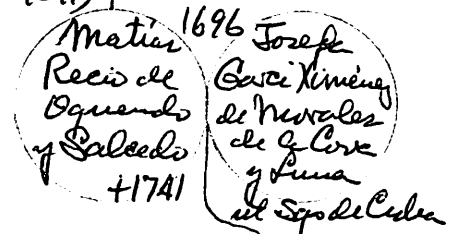 1696
Matías
Recio de
Oquendo
y Salcedo
+1741
Josefa
Garci Ximénez
de Morales
de la Cova
y Luna
nl Sgo de Cuba